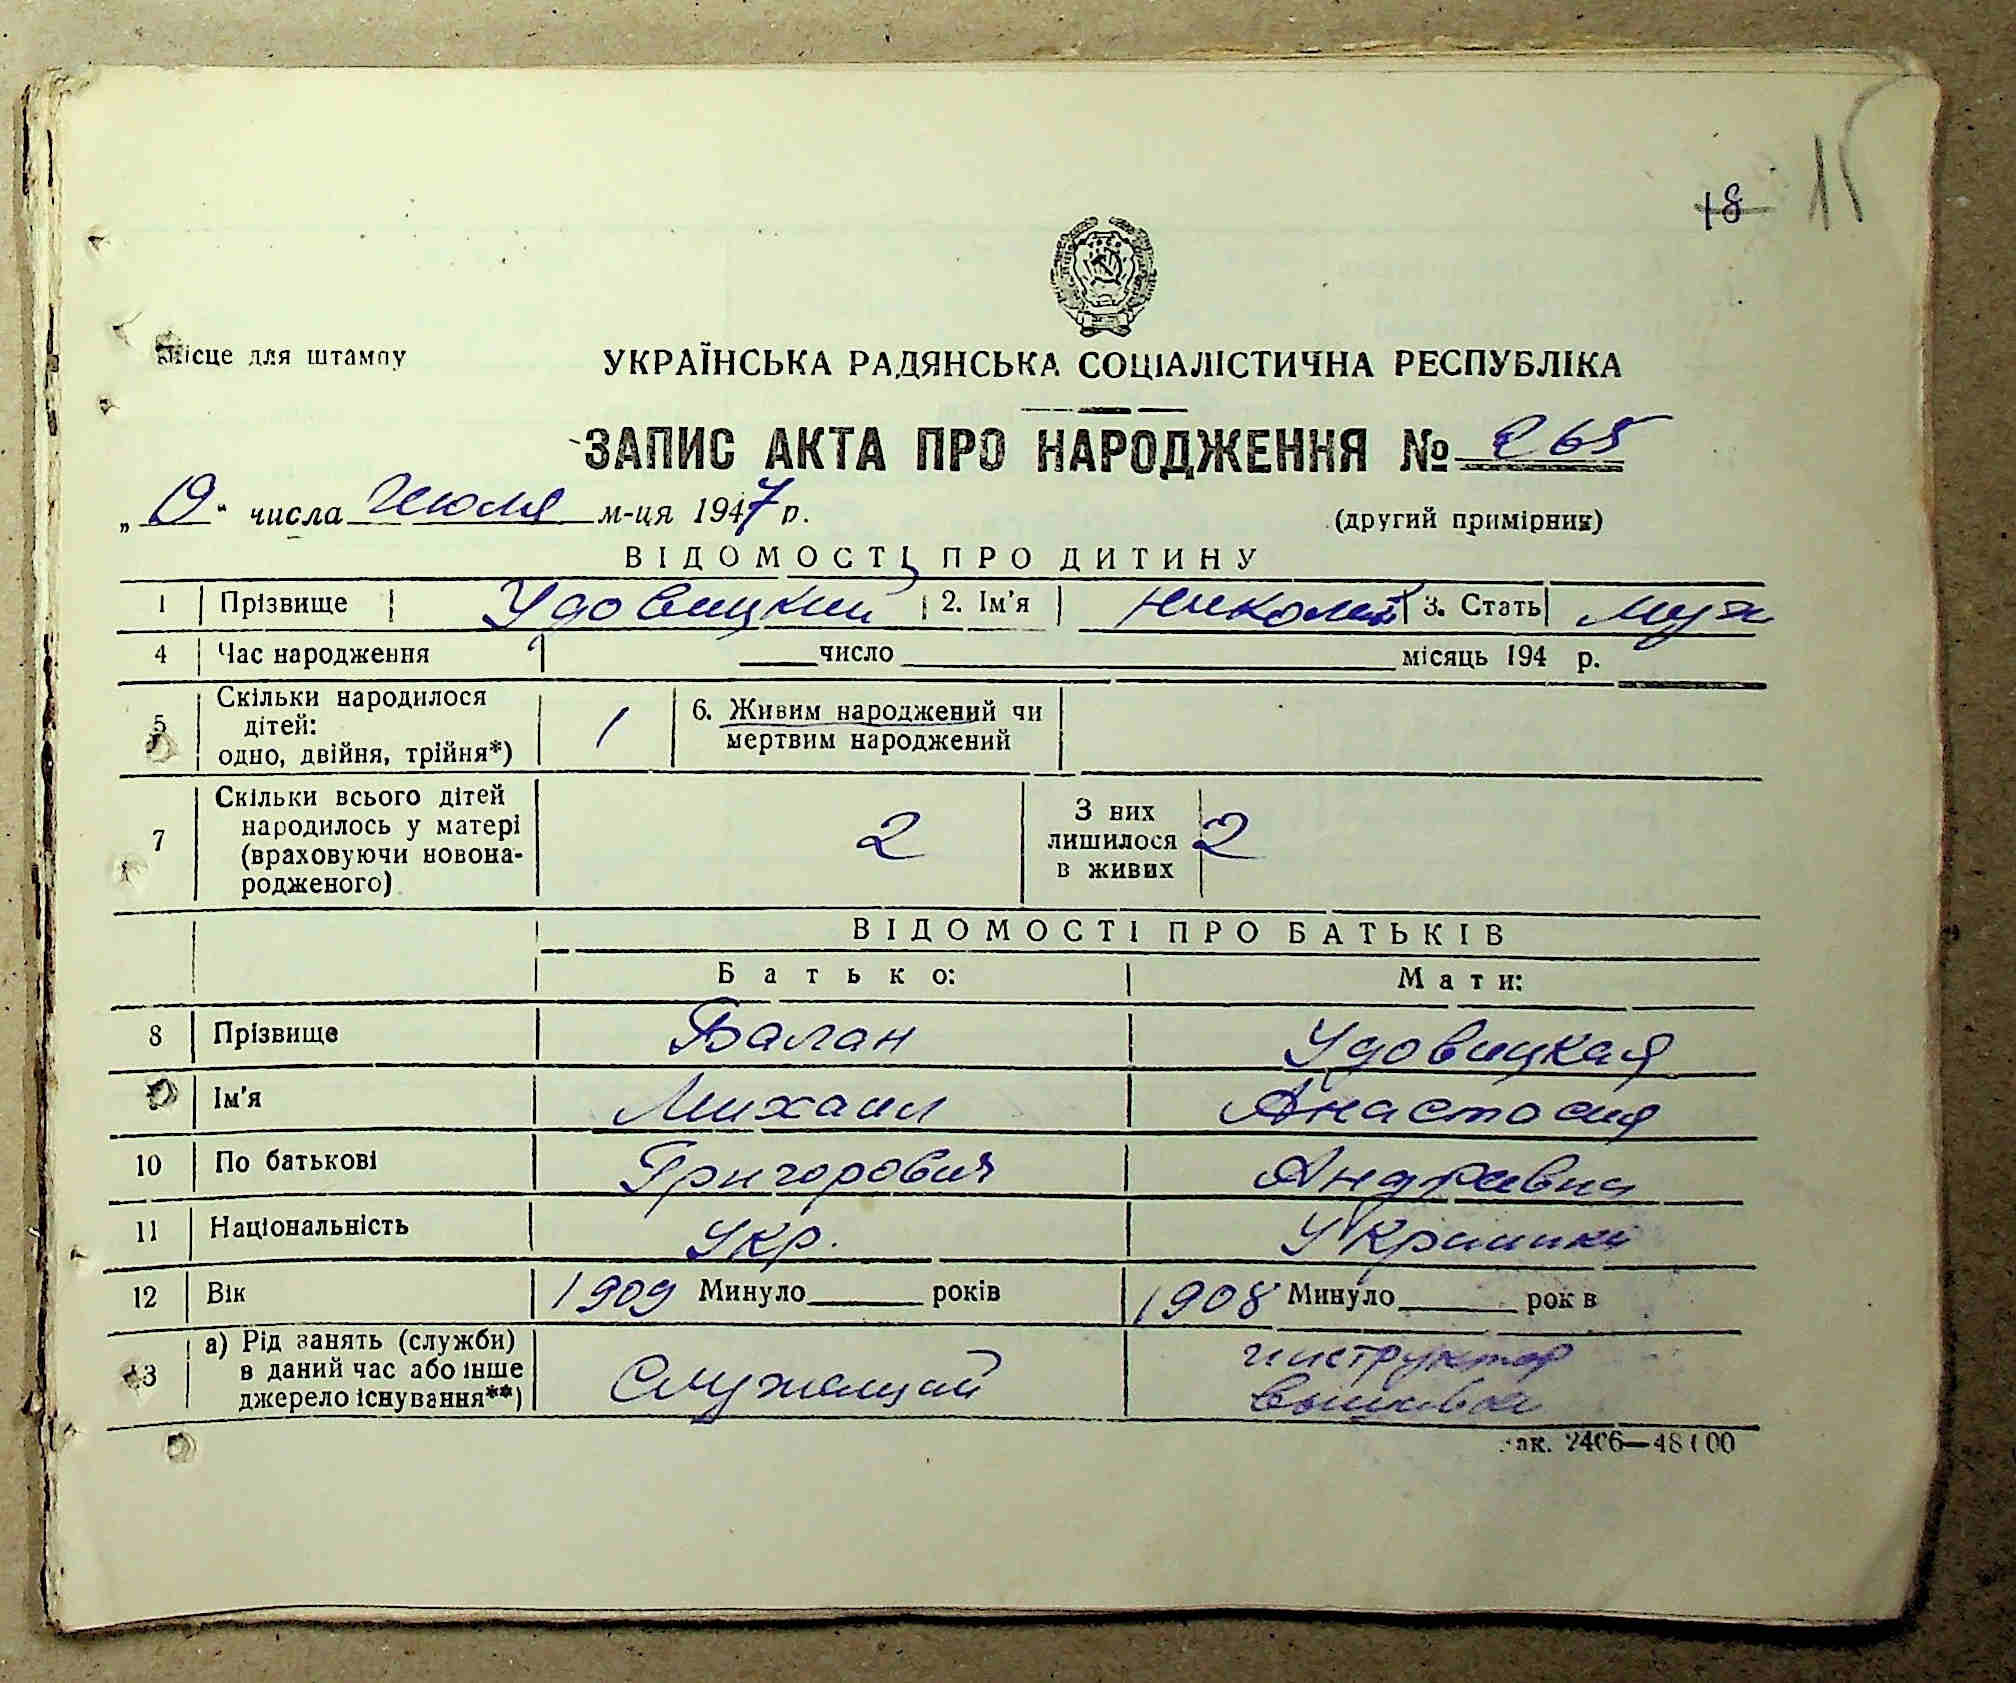 18 15
Місце для штампу
УКРАЇНСЬКА РАДЯНСЬКА СОЦІАЛІСТИЧНА РЕСПУБЛІКА
ЗАПИС АКТА ПРО НАРОДЖЕННЯ № 265
„ 19 “ числа Июля м-ця 1947 р.
(другий примірник)
ВІДОМОСТІ ПРО ДИТИНУ
1 Прізвище Удовицкий 2. Ім'я Николай 3. Стать муж
4 Час народження число місяць 194 р.
5 Скільки народилося
дітей:
одно, двійня, трійня*)
1
6. Живим народжений чи
мертвим народжений
7 Скільки всього дітей
народилось у матері
(враховуючи новона-
родженого)
2
З них
лишилося
в живих
2
ВІДОМОСТІ ПРО БАТЬКІВ
Батько: Мати:
8 Прізвище Балан Удовицкая
Ім'я Михаил Анастасия
10 По батькові Григорович Андравна
11 Національність Укр. Украинка
12 Вік 1909 Минуло років 1908 Минуло рок в
13 а) Рід занять (служби)
в даний час або інше
джерело існування**)
Служащий
инструктор
зак. 2406—48100